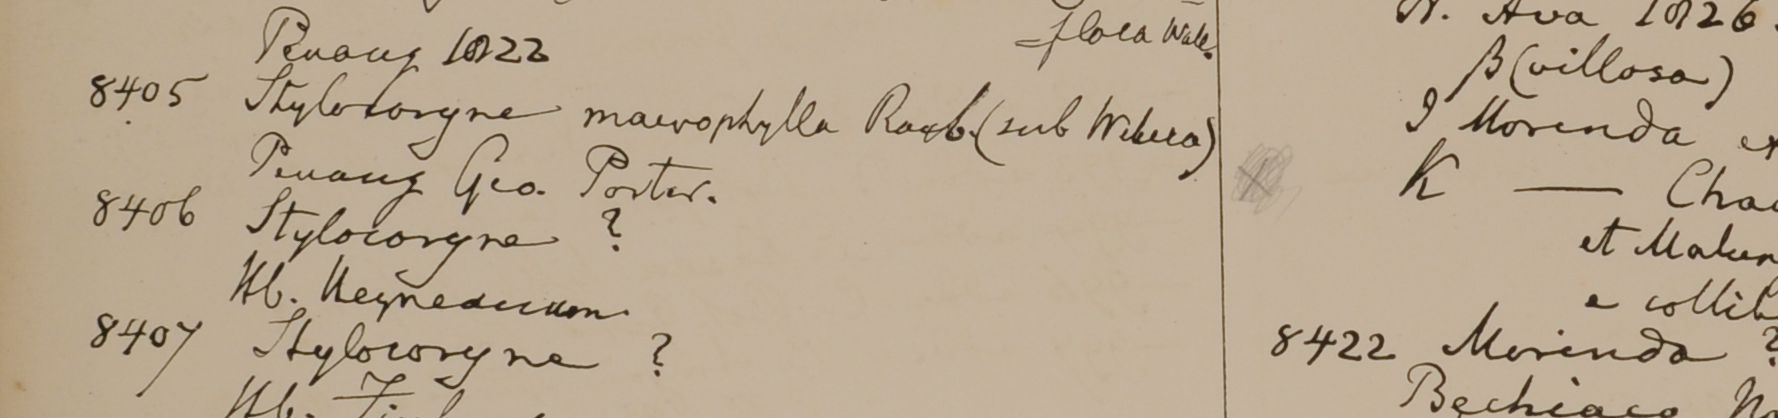 Penang 1822
flora Wall.
8405 Stylocoryne macrophylla Roxb. (sub Webera)
Penang Geo. Porter.
8406 Stylocoryne ?
Hb. Heyneanum
8407 Stylocoryne ?
Hb.
H. Ava 1826.
β (villosa)
I Morinda
K —
et
e
8422 Morinda ?